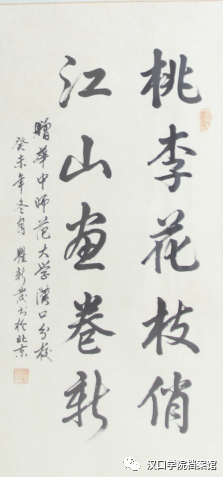 桃李花枝俏
江山画卷新
赠华中师范大学汉口分校
癸未年冬月 瞿新发书于北京
汉口学院档案馆